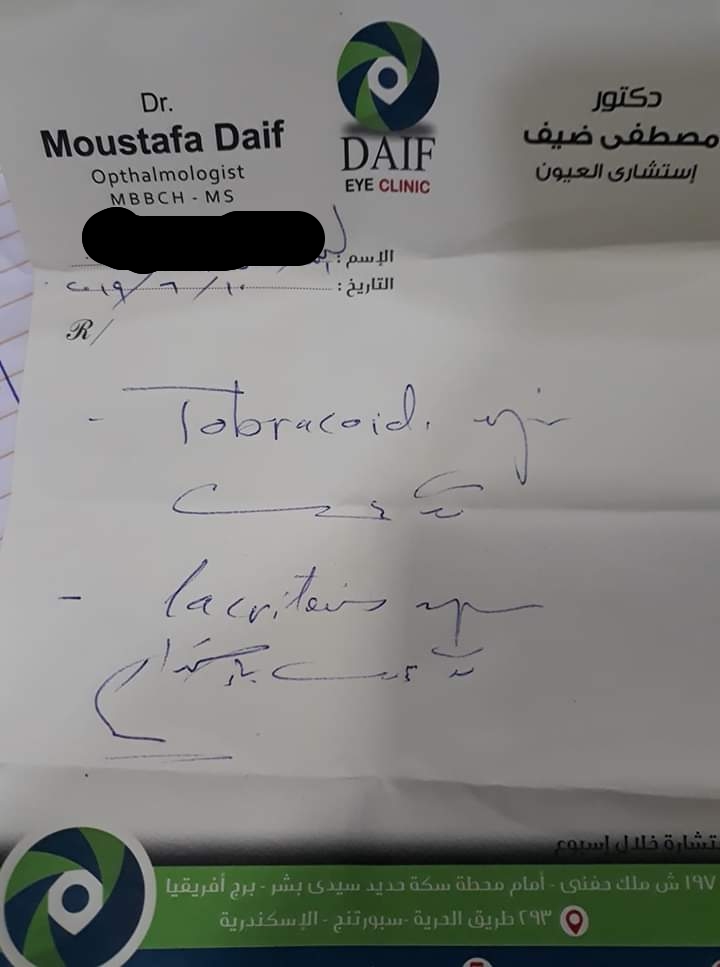 Dr.
Moustafa Daif
Opthalmologist
MBBCH - MS
DAIF
EYE CLINIC
دكتور
مصطفى ضيف
إستشارى العيون
الإسم :
التاريخ : ١٠ / ٦ / ٢٠١٩
R/
- Tobracoid.
-
تشارة خلال إسبوع
١٩٧ ش ملك حفنى - أمام محطة سكة حديد سيدى بشر - برج أفريقيا
٢٩٣ طريق الحرية - سبورتنج - الإسكندرية